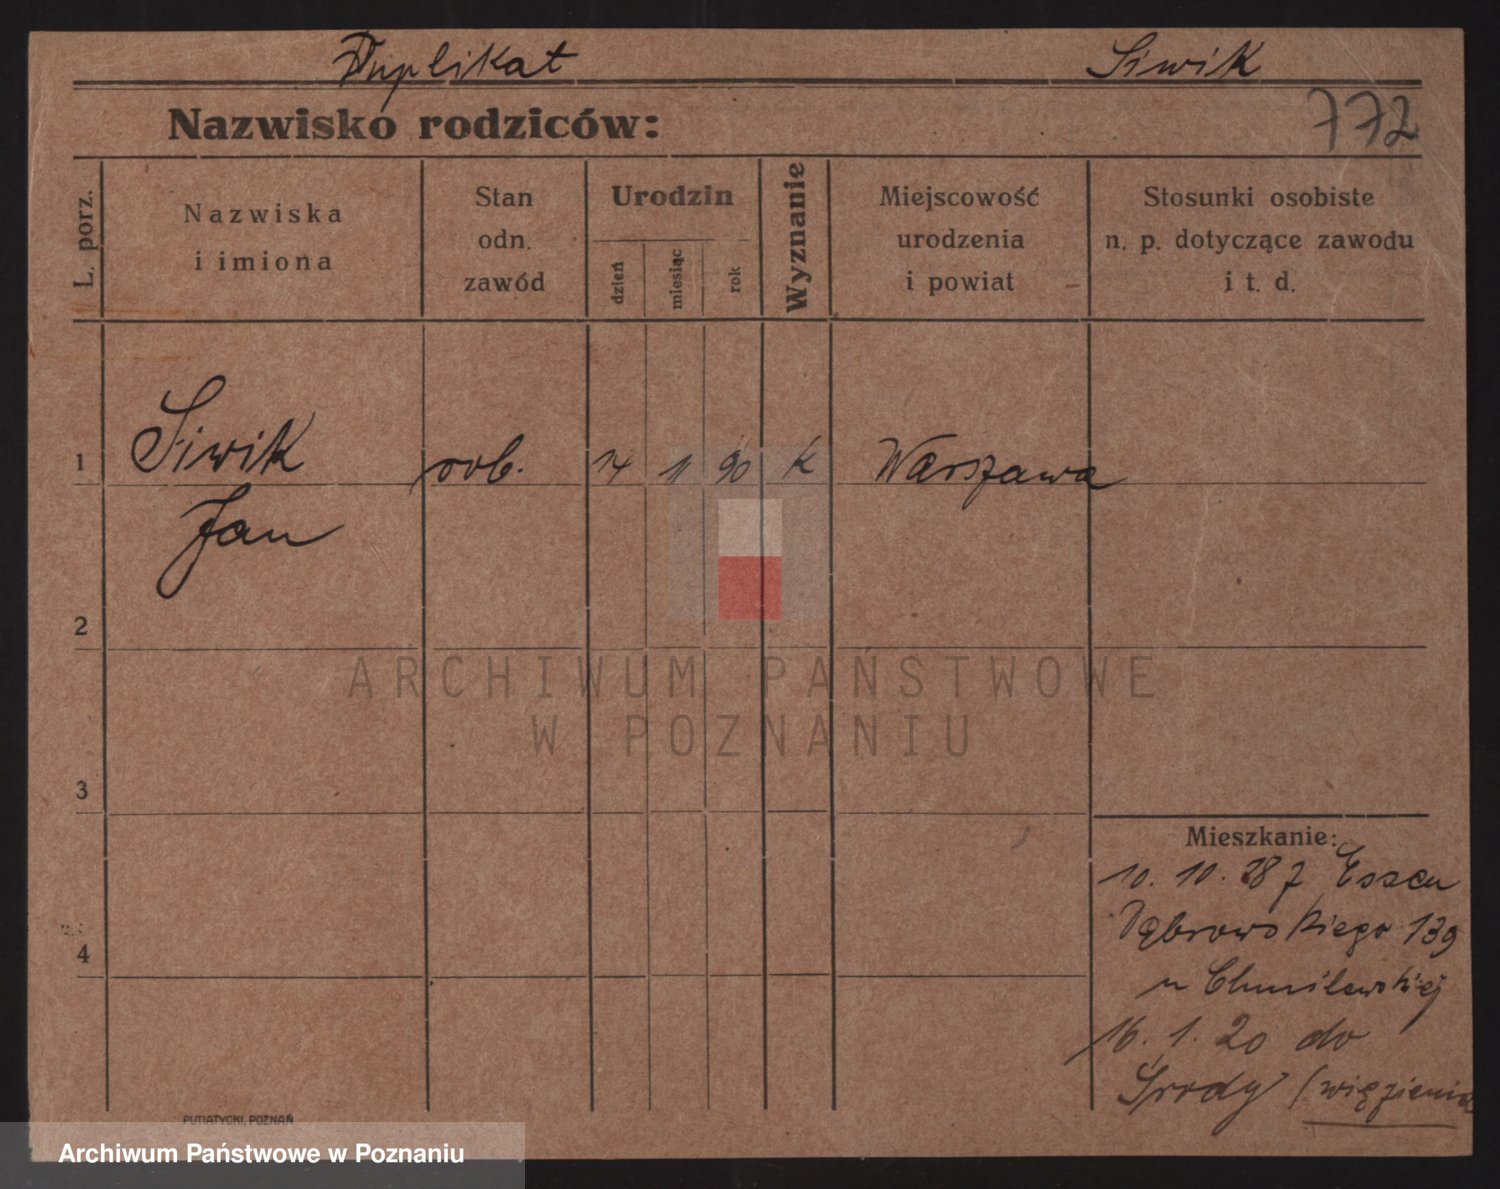 Duplikat Siwik
Nazwisko rodziców: 772
L. porz.
Nazwiska
i imiona
Stan
odn.
zawód
Urodzin
dzień miesiąc rok
Wyznanie
Miejscowość
urodzenia
i powiat
Stosunki osobiste
n. p. dotyczące zawodu
i t. d.
1 Siwik rob. 14 1 90 K Warszawa
Jan
2
3
4
Mieszkanie:
10. 10. 18 z Essen
Dąbrowskiego 139
u Chmilewskiej
16. 1. 20 do
Środy (więzienia
PUTIATYCKI, POZNAŃ
ARCHIWUM PAŃSTWOWE
W POZNANIU
Archiwum Państwowe w Poznaniu